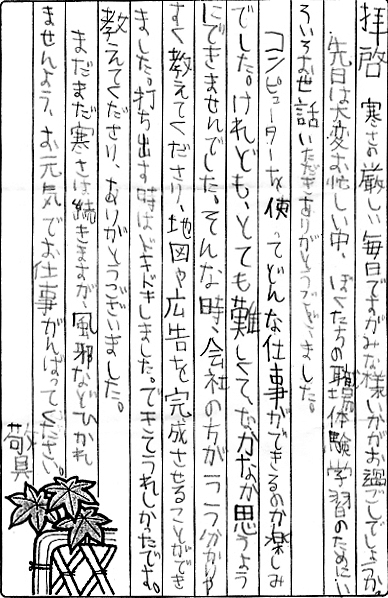 拝啓 寒さの厳しい毎日ですがみな様いかがお過ごしでしょうか。
先日は大変お忙しい中、ぼくたちの職場体験学習のためにい
ろいろお世話いただきありがとうございました。
コンピューターを使ってどんな仕事ができるのか楽しみ
でした。けれども、とても難しくて、なかなか思うよう
にできませんでした。そんな時、会社の方がうつかりや
すく教えてくださり、地図や広告を完成させることができ
ました。打ち出す時はドキドキしました。できてうれしかたです。
教えてくださり、ありがとうございました。
まだまだ寒さは続きますが、風邪などひかれ
ませんよう、お元気でお仕事がんばってください。
敬具